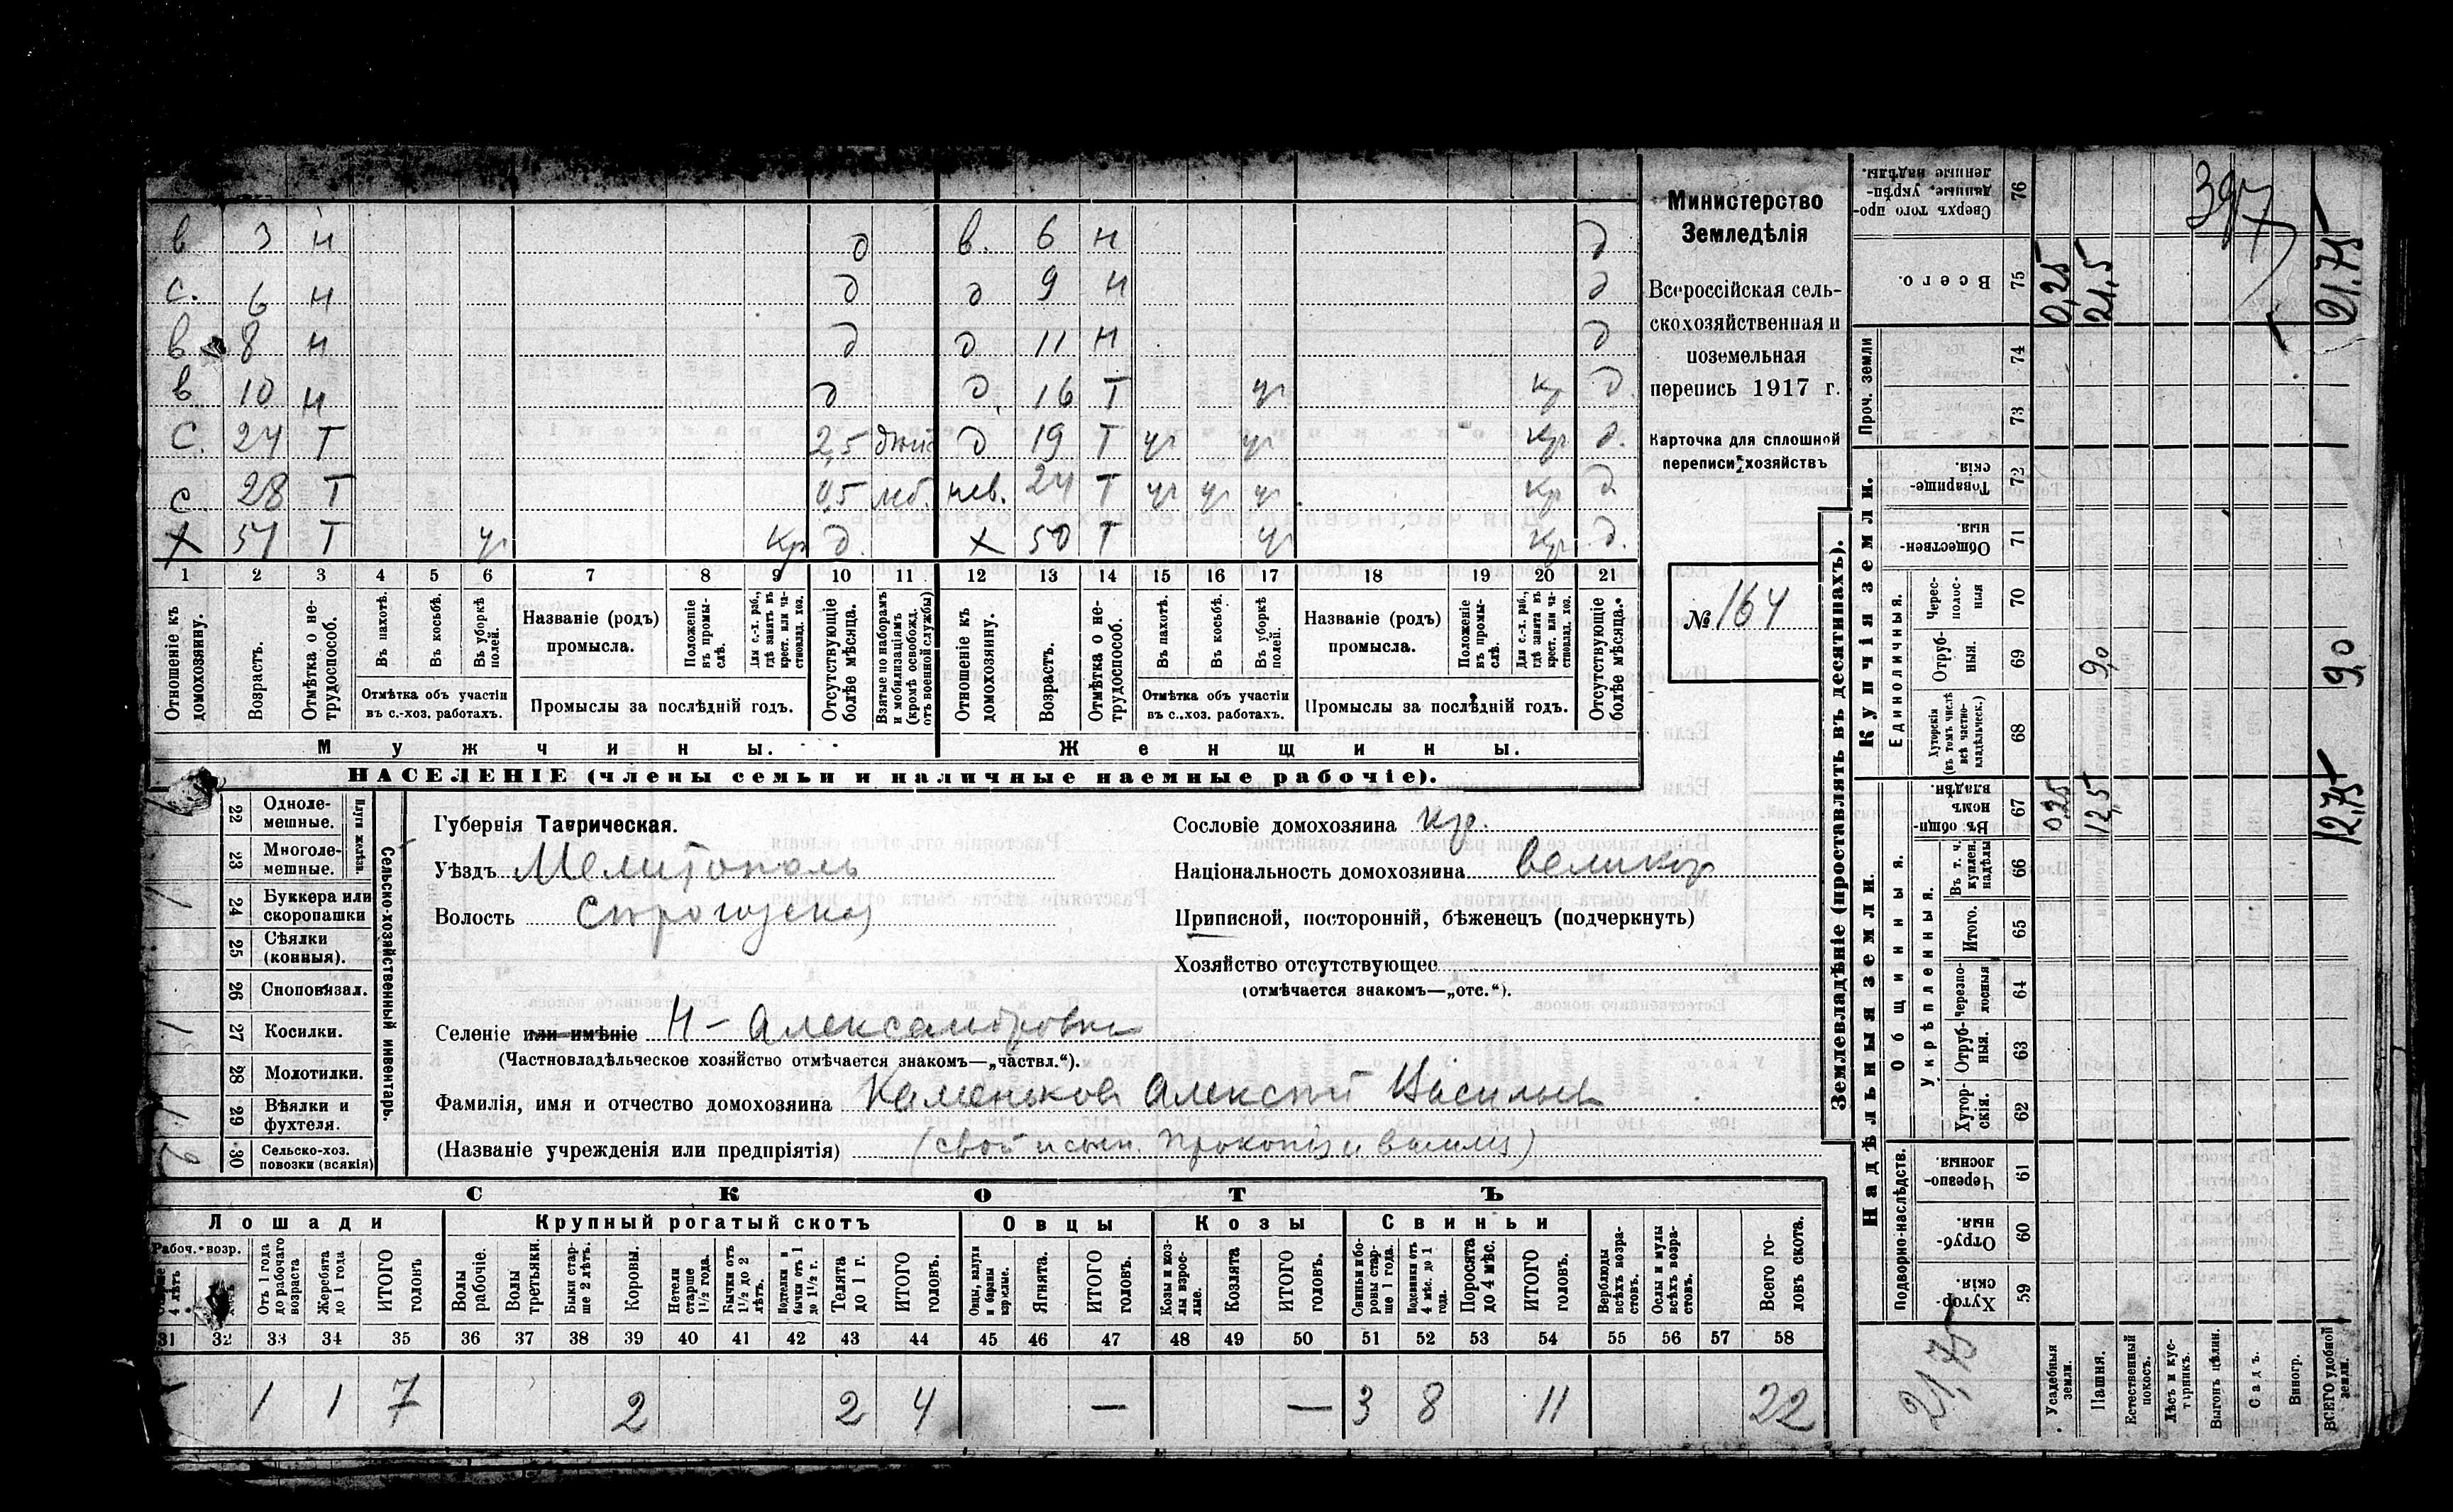 в 3 н д в. 6 н д
с. 6 н д д 9 н д
в 8 н д д 11 н д
в 10 н д д 16 Т уг кр д.
с. 24 Т 2,5 д 19 Т уг уг кр д.
с 28 Т 0,5 мб. нев. 24 Т уг уг уг кр д
х 51 Т уг кр д. х 50 Т уг кр д.
1 2 3 4 5 6 7 8 9 10 11 12 13 14 15 16 17 18 19 20 21
Отношеніе къ домохозяину.
Возрастъ.
Отмѣтка о не-трудоспособ.
Въ пахотѣ.
Въ косьбѣ.
Въ уборкѣ полей.
Отмѣтка объ участіи
въ с.-хоз. работахъ.
Названіе (родъ)
промысла.
Положеніе въ промы-слѣ.
Для с.-х. раб., гдѣ занятъ въ крест. или ча-стновлад. хоз.
Промыслы за послѣдній годъ.
Отсутствующіе болѣе мѣсяца.
Взятые по наборамъ и мобилизаціямъ (кромѣ освобожд. отъ военной службы)
Отношеніе къ домохозяину.
Возрастъ.
Отмѣтка о не-трудоспособ.
Въ пахотѣ.
Въ косьбѣ.
Въ уборкѣ полей.
Отмѣтка объ участіи
въ с.-хоз. работахъ.
Названіе (родъ)
промысла.
Положеніе въ промы-слѣ.
Для с.-х. раб., гдѣ занята въ крест. или ча-стновлад. хоз.
Промыслы за послѣдній годъ.
Отсутствующіе болѣе мѣсяца.
Мужчины. Женщины.
НАСЕЛЕНІЕ (члены семьи и наличные наемные рабочіе).
Министерство
Земледѣлія
Всероссійская сель-
скохозяйственная и
поземельная
перепись 1917 г.
Карточка для сплошной
переписи хозяйствъ
№ 164
22 Одноле-мешные.
23 Многоле-мешные.
Плуги желѣзн.
24 Буккера или скоропашки
25 Сѣялки (конныя).
26 Сноповязал.
27 Косилки.
28 Молотилки.
29 Вѣялки и фухтеля.
30 Сельско-хоз. повозки (всякія)
Сельско-хозяйственный инвентарь.
Губернія Таврическая.
Уѣздъ Мелитополь
Волость
Селеніе или имѣніе Н-Александровка
(Частновладѣльческое хозяйство отмѣчается знакомъ—„частвл.“).
Фамилія, имя и отчество домохозяина Каменьков Алексѣй Васильев
(Названіе учрежденія или предпріятія) (свой и сын. Прокопія и Василія)
Сословіе домохозяина кр.
Національность домохозяина великор
Приписной, посторонній, бѣженецъ (подчеркнуть)
Хозяйство отсутствующее
(отмѣчается знакомъ—„отс.“).
СКОТЪ
Лошади Крупный рогатый скотъ Овцы Козы Свиньи
Рабоч. возр.
4 лѣтъ
От 1 года до рабочаго возраста
Жеребята до 1 года
ИТОГО головъ
Волы рабочіе.
Волы третьяки.
Быки стар-ше 2 лѣтъ.
Коровы.
Нетели старше 1½ года.
Бычки отъ 1½ до 2 лѣтъ.
Подтелки и бычки отъ 1 до 1½ г.
Телята до 1 г.
ИТОГО головъ.
Овцы, валухи и бараны взрослые.
Ягнята.
ИТОГО головъ.
Козы и коз-лы взрос-лые.
Козлята
ИТОГО головъ.
Свиньи и бо-ровы стар-ше 1 года.
Подсвинки отъ 4 мѣс. до 1 года.
Поросята до 4 мѣс.
ИТОГО головъ.
Верблюды всѣхъ возра-стовъ.
Ослы и мулы всѣхъ возра-стовъ.
Всего го-ловъ скота.
31 32 33 34 35 36 37 38 39 40 41 42 43 44 45 46 47 48 49 50 51 52 53 54 55 56 57 58
1 1 7 2 2 4 — — 3 8 11 22
Землевладѣніе (проставлять въ десятинахъ).
Надѣльныя земли. Купчія земли. Проч. земли
Подворно-наслѣдств.
Общинныя.
Укрѣпленныя.
Единоличныя.
Хутор-скія. 59
Отруб-ныя. 60
Черезпо-лосныя 61
Хутор-скія. 62
Отруб-ныя. 63
Черезпо-лосныя 64
Итого. 65
Въ т. ч. куплен. надѣлы 66
Въ общин-номъ владѣн. 67
Хуторскія (въ томъ числѣ всѣ частно-владѣльческ.) 68
Отруб-ныя. 69
Черес-полос-ныя 70
Обществен-ныя 71
Товарище-скія. 72
73
74
Всего. 75
Сверхъ того про-данные, укрѣп-ленные надѣлы. 76
Усадебныя земли. 0,25 0,25
Пашня. 12,5 9,0 21,5
Естественный покосъ.
Лѣсъ и кус-тарникъ.
Выгонъ цѣлин.
Садъ.
Виногр.
ВСЕГО удобной земли. 12,75 9,0 21.75
21,75
397